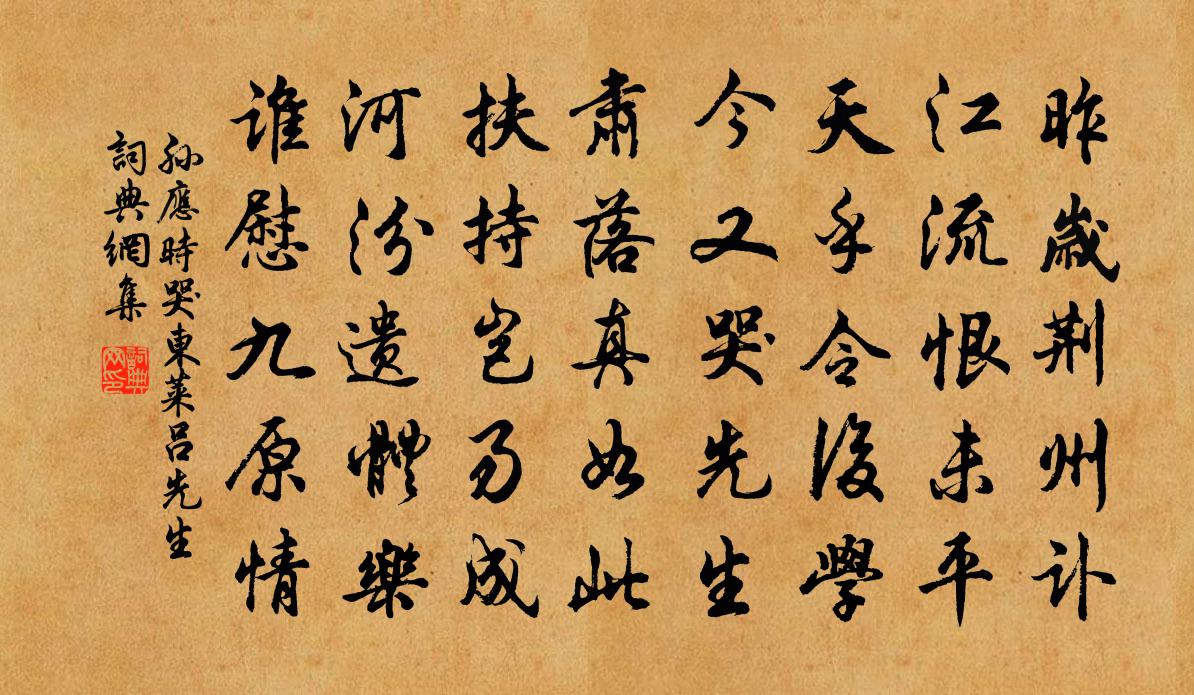 昨歲荆州訃
江流恨未平
天乎令後學
今又哭先生
肅落真如此
扶持豈易成
河汾遺體樂
誰慰九原情
孫應時哭東萊呂先生
詞典網集
詞典网印